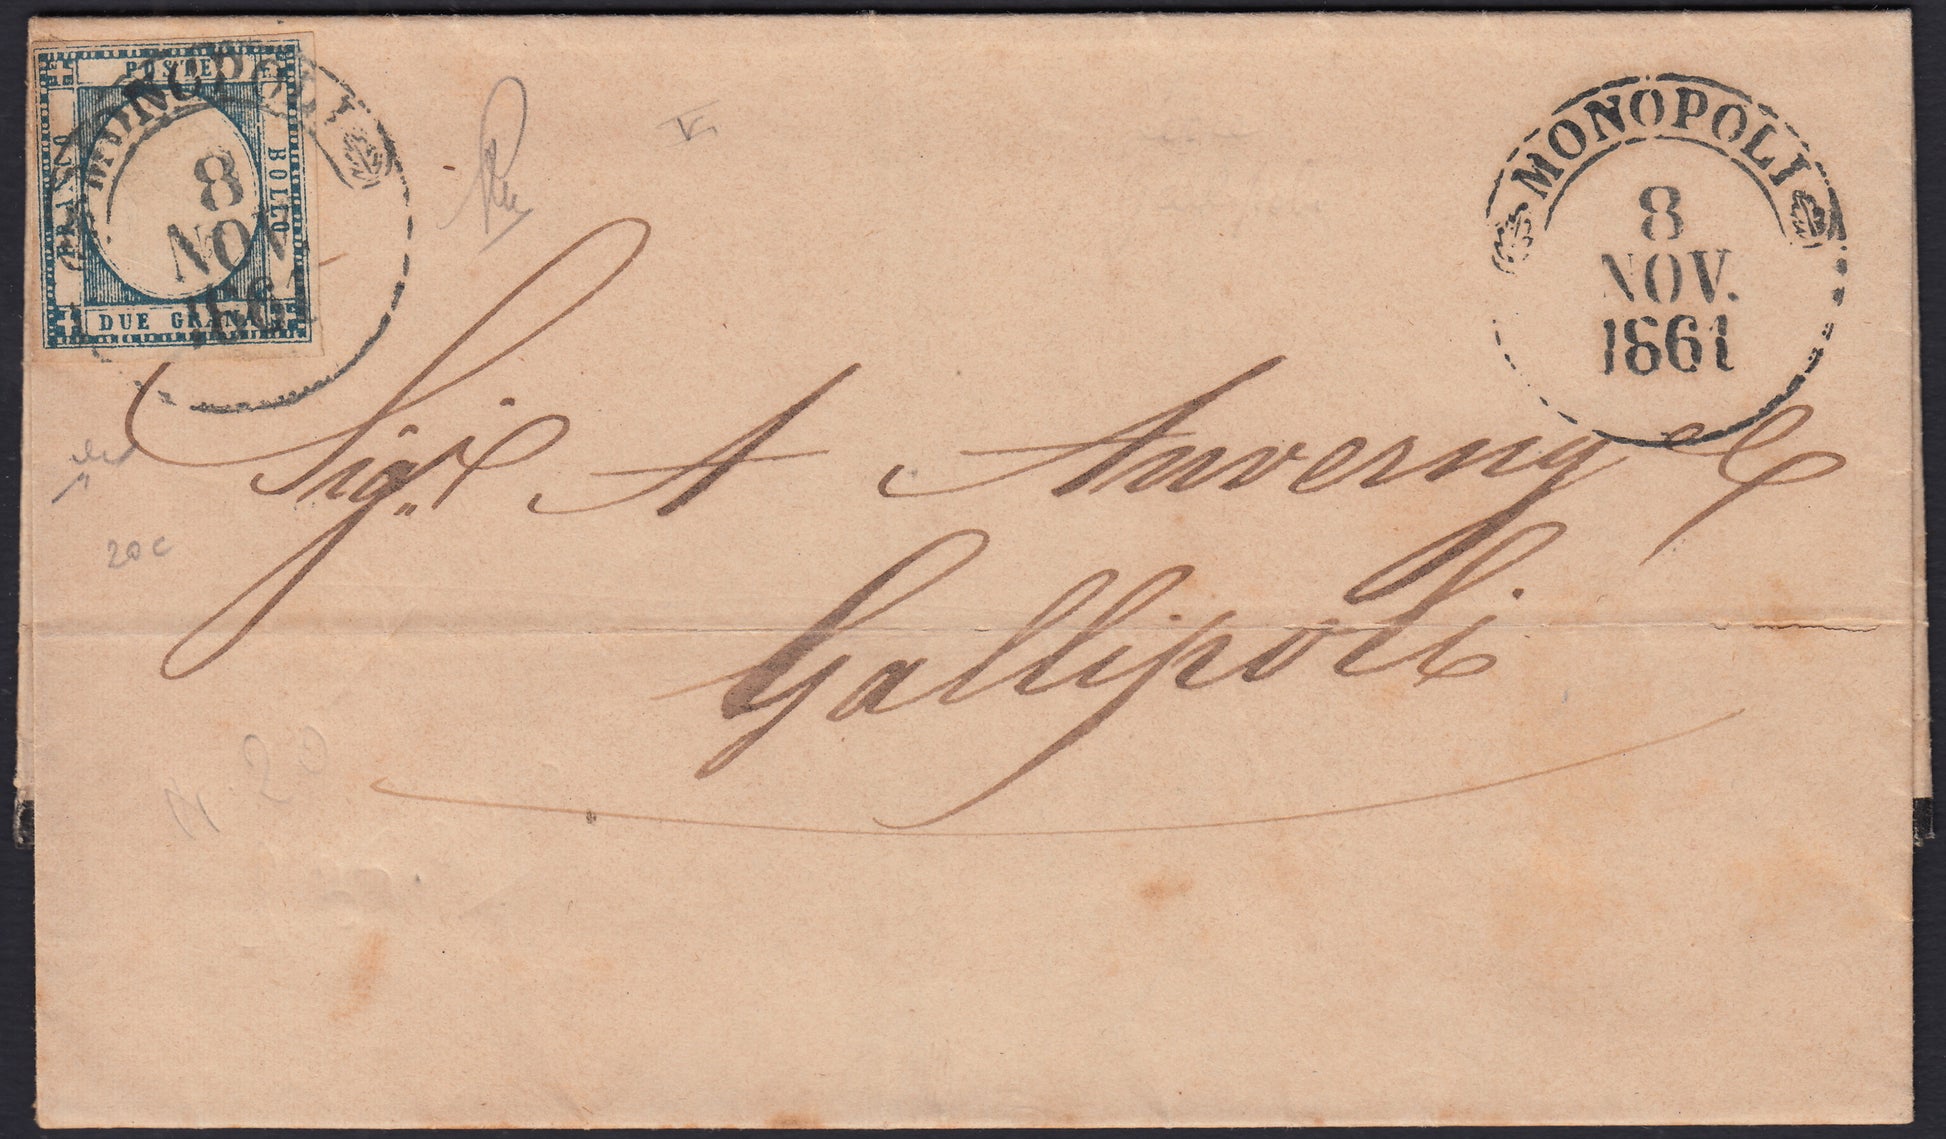 POSTE
FRANCO
BOLLO
DUE GRANA
MONOPOLI
8
NOV.
1861
MONOPOLI
8
NOV.
1861
Sigr A Auverny &C
Gallipoli
20 c
N. 20